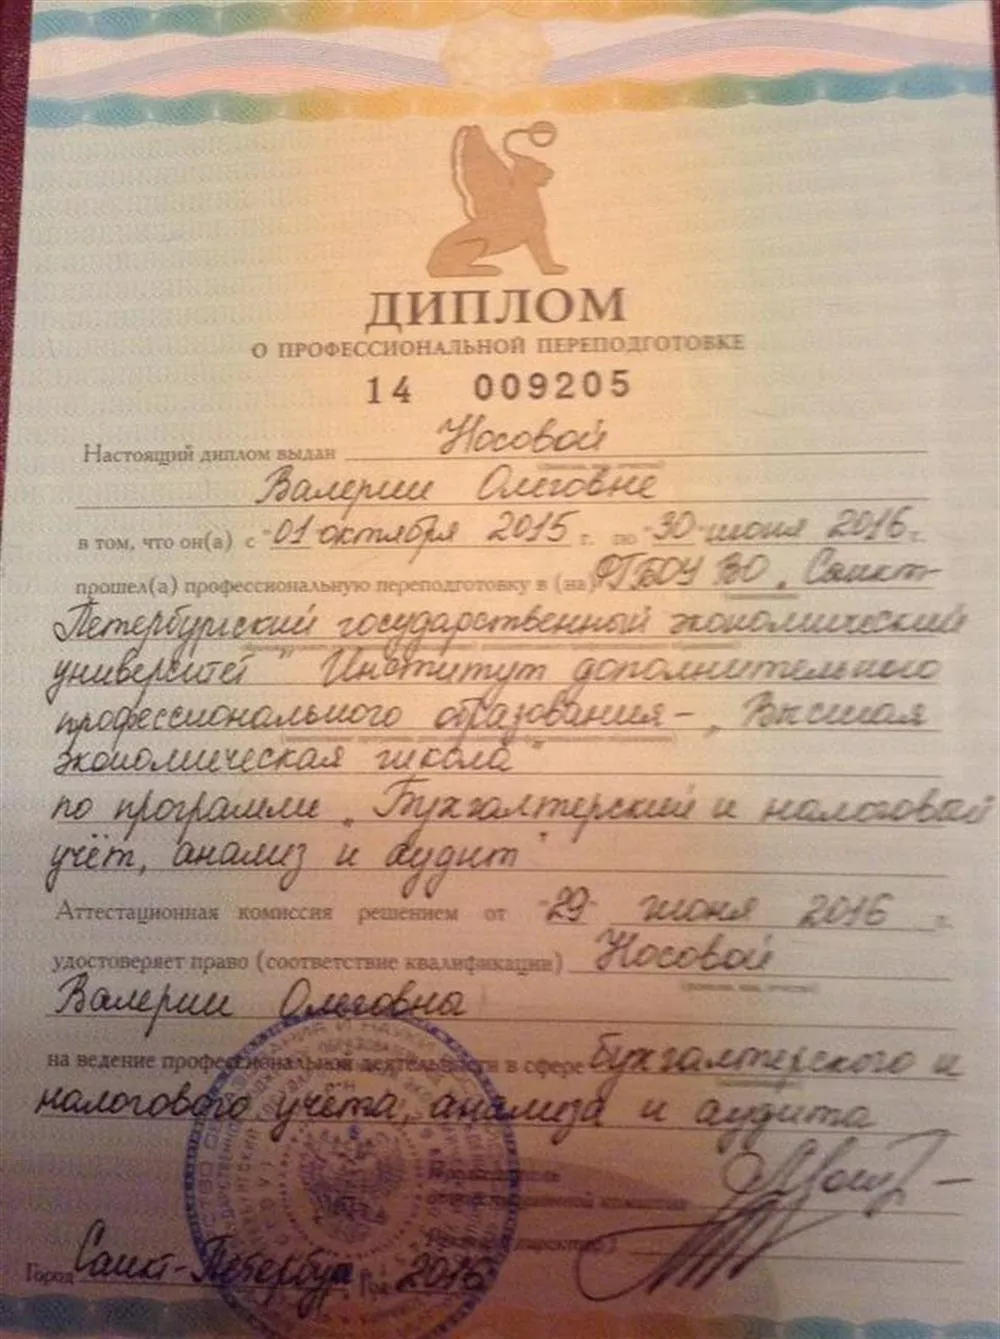 ДИПЛОМ
О ПРОФЕССИОНАЛЬНОЙ ПЕРЕПОДГОТОВКЕ
14 009205
Настоящий диплом выдан Носовой
Валерии Олеговне
в том, что он(а) с "01" октября 2015 г. по "30" июня 2016 г.
прошел(а) профессиональную переподготовку в (на) ФГБОУ ВО "Санкт-
Петербургский государственный экономический
университет" Институт дополнительного
профессионального образования - "Высшая
экономическая школа"
по программе "Бухгалтерский и налоговый
учёт, анализ и аудит"
Аттестационная комиссия решением от "29" июня 2016 г.
удостоверяет право (соответствие квалификации) Носовой
Валерии Олеговна
на ведение профессиональной деятельности в сфере бухгалтерского и
налогового учёта, анализа и аудита
Город Санкт-Петербург, год 2016